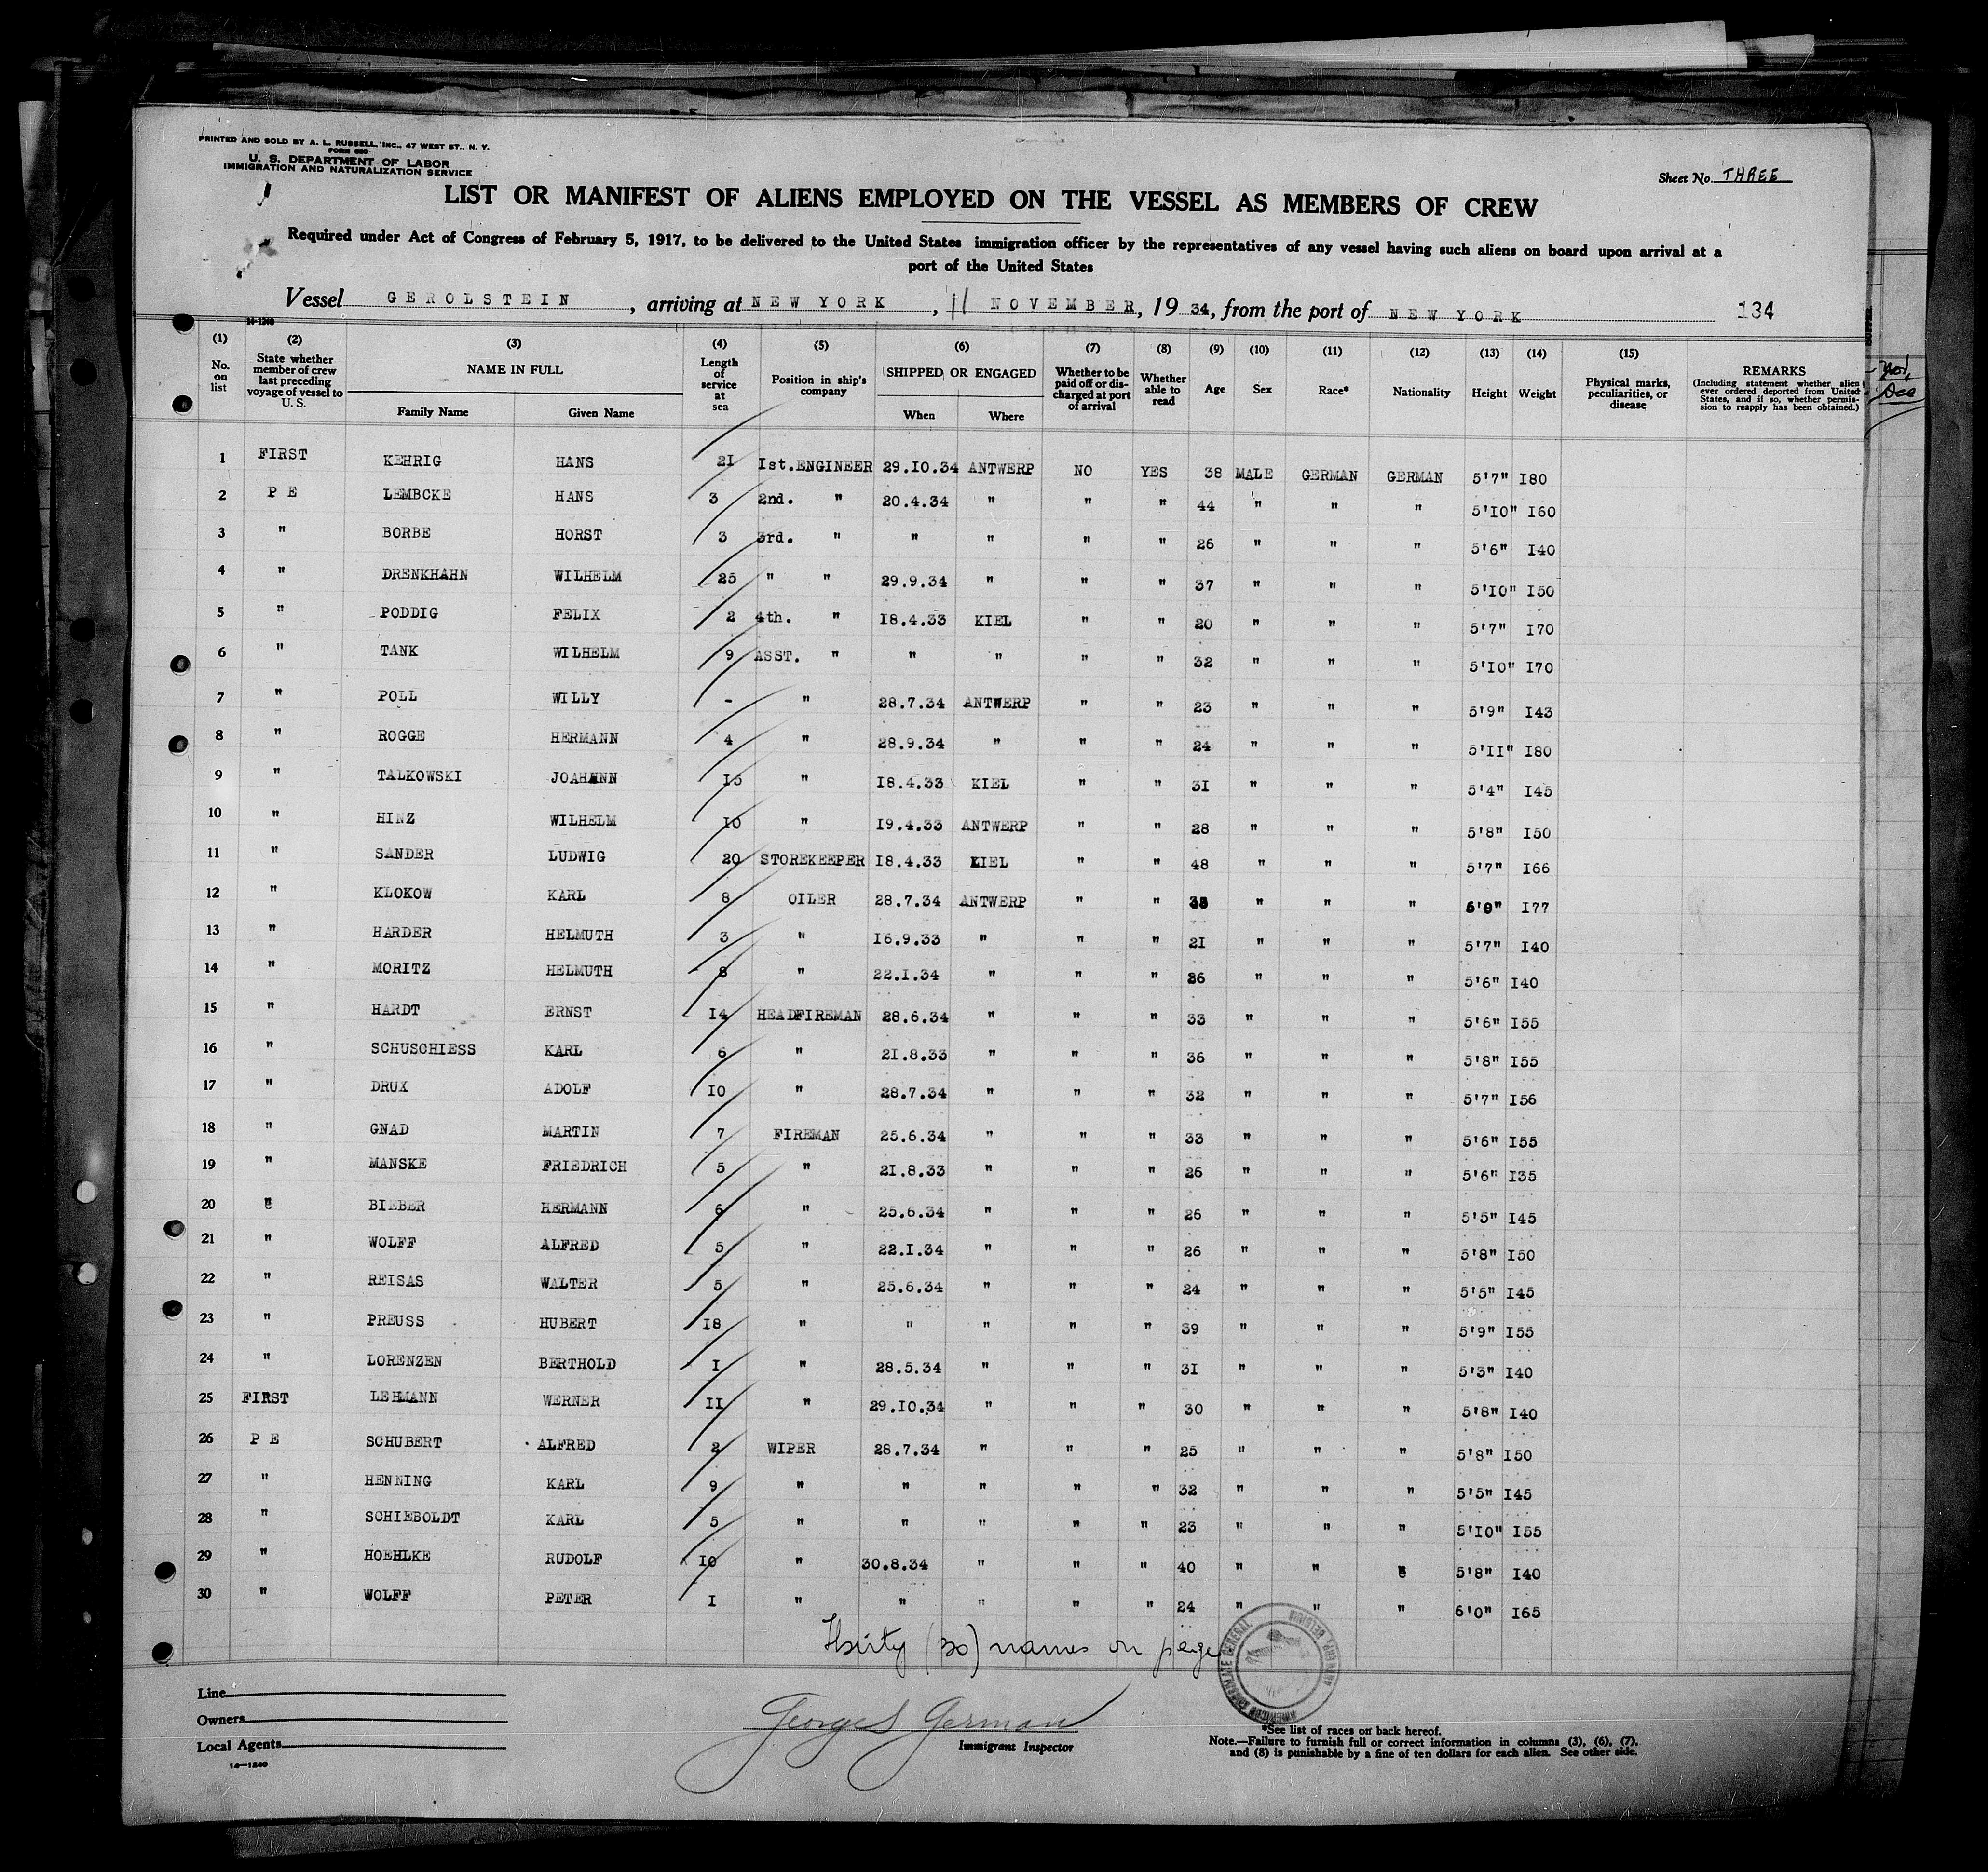 PRINTED AND SOLD BY A. L. RUSSELL, INC., 47 WEST ST., N. Y.
FORM 680
U. S. DEPARTMENT OF LABOR
IMMIGRATION AND NATURALIZATION SERVICE
Sheet No. THREE
LIST OR MANIFEST OF ALIENS EMPLOYED ON THE VESSEL AS MEMBERS OF CREW
Required under Act of Congress of February 5, 1917, to be delivered to the United States immigration officer by the representatives of any vessel having such aliens on board upon arrival at a
port of the United States
Vessel GEROLSTEIN, arriving at NEW YORK, 11 NOVEMBER, 1934, from the port of NEW YORK 134
14-1240
(1) No. on list (2) State whether member of crew last preceding voyage of vessel to U. S. (3) NAME IN FULL Family Name Given Name (4) Length of service at sea (5) Position in ship's company (6) SHIPPED OR ENGAGED When Where (7) Whether to be paid off or discharged at port of arrival (8) Whether able to read (9) Age (10) Sex (11) Race* (12) Nationality (13) Height (14) Weight (15) Physical marks, peculiarities, or disease REMARKS (Including statement whether alien ever ordered deported from United States, and if so, whether permission to reapply has been obtained.)
1 FIRST KEHRIG HANS 21 Ist.ENGINEER 29.IO.34 ANTWERP NO YES 38 MALE GERMAN GERMAN 5'7" I80
2 P E LEMBCKE HANS 3 2nd. " 20.4.34 " " " 44 " " " 5'IO" I60
3 " BORBE HORST 3 3rd. " " " " " 26 " " " 5'6" I40
4 " DRENKHAHN WILHELM 25 " " 29.9.34 " " " 37 " " " 5'IO" I50
5 " PODDIG FELIX 2 4th. " I8.4.33 KIEL " " 20 " " " 5'7" I70
6 " TANK WILHELM 9 ASST. " " " " " 32 " " " 5'IO" I70
7 " POLL WILLY - " 28.7.34 ANTWERP " " 23 " " " 5'9" I43
8 " ROGGE HERMANN 4 " 28.9.34 " " " 24 " " " 5'II" I80
9 " TALKOWSKI JOAHNN I5 " I8.4.33 KIEL " " 3I " " " 5'4" I45
10 " HINZ WILHELM IO " I9.4.33 ANTWERP " " 28 " " " 5'8" I50
11 " SANDER LUDWIG 20 STOREKEEPER I8.4.33 KIEL " " 48 " " " 5'7" I66
12 " KLOKOW KARL 8 OILER 28.7.34 ANTWERP " " " " " 6'0" I77
13 " HARDER HELMUTH 3 " I6.9.33 " " " 2I " " " 5'7" I40
14 " MORITZ HELMUTH 8 " 22.I.34 " " " 26 " " " 5'6" I40
15 " HARDT ERNST I4 HEADFIREMAN 28.6.34 " " " 33 " " " 5'6" I55
16 " SCHUSCHIESS KARL 6 " 2I.8.33 " " " 36 " " " 5'8" I55
17 " DRUX ADOLF IO " 28.7.34 " " " 32 " " " 5'7" I56
18 " GNAD MARTIN 7 FIREMAN 25.6.34 " " " 33 " " " 5'6" I55
19 " MANSKE FRIEDRICH 5 " 2I.8.33 " " " 26 " " " 5'6" I35
20 " BIEBER HERMANN 6 " 25.6.34 " " " 26 " " " 5'5" I45
21 " WOLFF ALFRED 5 " 22.I.34 " " " 26 " " " 5'8" I50
22 " REISAS WALTER 5 " 25.6.34 " " " 24 " " " 5'5" I45
23 " PREUSS HUBERT I8 " " " " " 39 " " " 5'9" I55
24 " LORENZEN BERTHOLD I " 28.5.34 " " " 3I " " " 5'3" I40
25 FIRST LEHMANN WERNER II " 29.IO.34 " " " 30 " " " 5'8" I40
26 P E SCHUBERT ALFRED 2 WIPER 28.7.34 " " " 25 " " " 5'8" I50
27 " HENNING KARL 9 " " " " " 32 " " " 5'5" I45
28 " SCHIEBOLDT KARL 5 " " " " " 23 " " " 5'IO" I55
29 " HOEHLKE RUDOLF IO " 30.8.34 " " " 40 " " " 5'8" I40
30 " WOLFF PETER I " " " " " 24 " " " 6'0" I65
Thirty (30) names on page
AMERICAN CONSULATE GENERAL ANTWERP, BELGIUM
Line
Owners
Local Agents
14—1240
George S German
Immigrant Inspector
*See list of races on back hereof.
Note.—Failure to furnish full or correct information in columns (3), (6), (7),
and (8) is punishable by a fine of ten dollars for each alien. See other side.